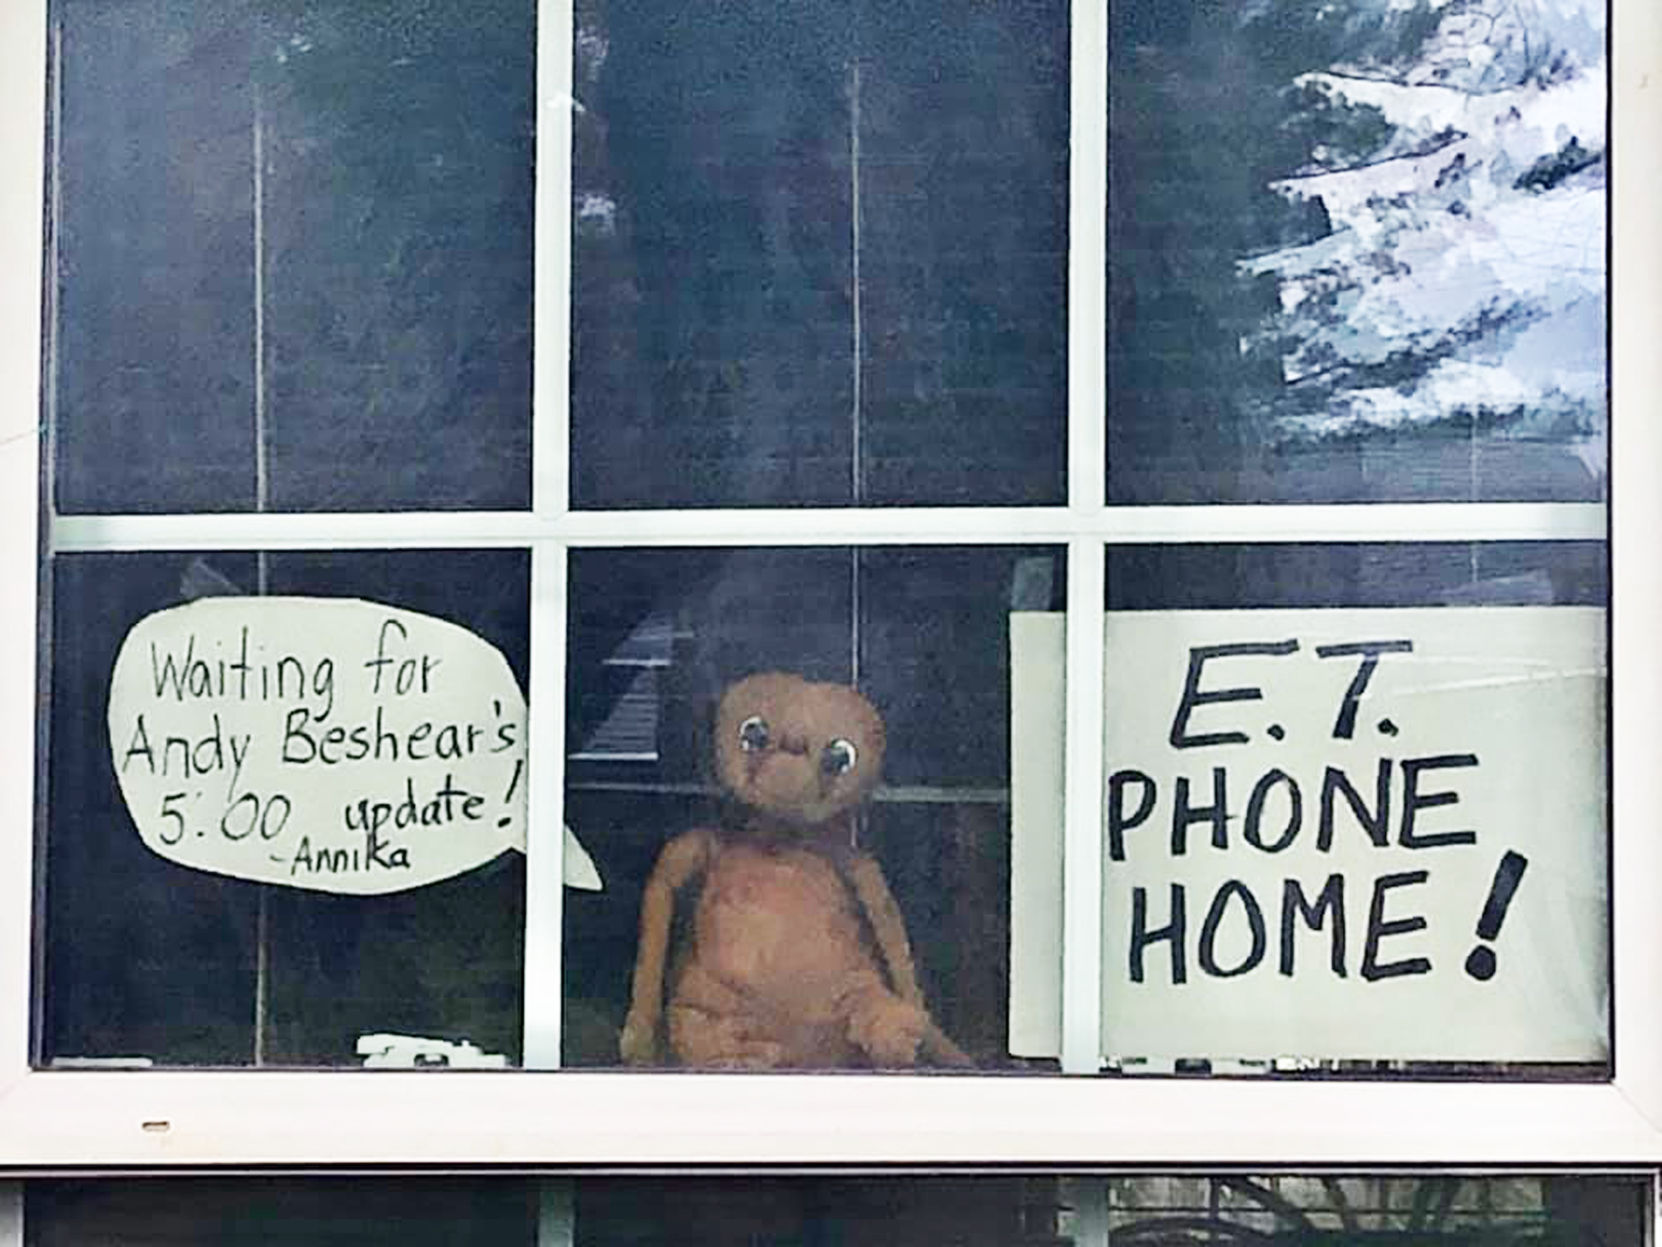 Waiting for
Andy Beshear's
5:00 update!
-Annika
E.T.
PHONE
HOME!